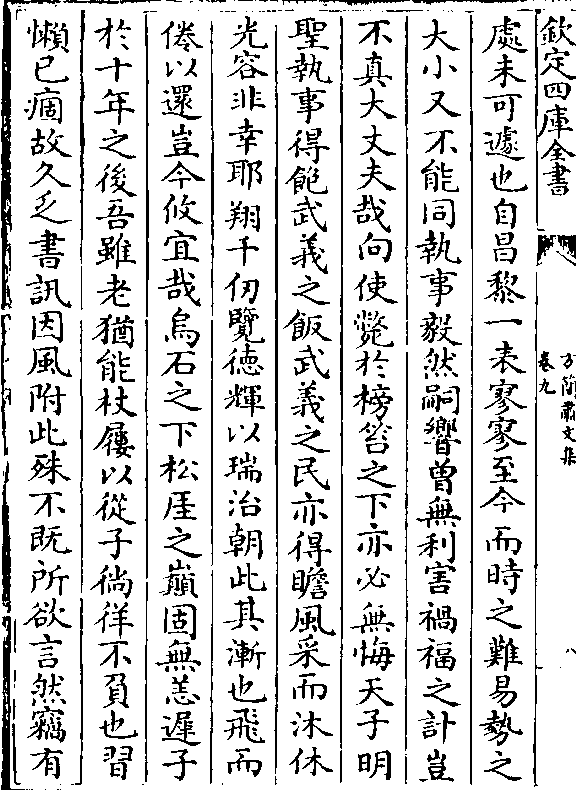 欽定四庫全書
方簡肅文集
卷九
八
處未可遽也自昌黎一表寥寥至今而時之難易勢之
大小又不能同執事毅然嗣響曾無利害禍福之計豈
不真大丈夫哉向使斃於榜笞之下亦必無悔天子明
聖執事得飽武義之飯武義之民亦得瞻風采而沐休
光容非幸耶翔千仞覽徳輝以瑞治朝此其漸也飛而
倦以還豈今攸宜哉烏石之下松厓之巔固無恙遲子
於十年之後吾雖老猶能杖屨以從子徜徉不負也習
懶已痼故久乏書訊因風附此殊不既所欲言然竊有